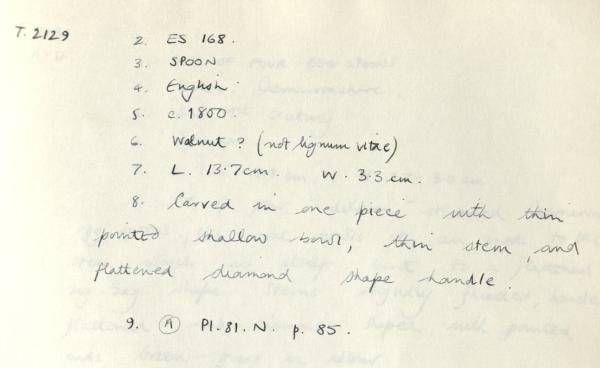 T. 2129
2. ES 168.
3. SPOON
4. English.
5. c. 1800.
6. Walnut? (not lignum vitae)
7. L. 13.7cm. W. 3.3 cm.
8. Carved in one piece with thin
pointed shallow bowl, thin stem, and
flattened diamond shape handle.
9. (A) Pl. 81. N. p. 85.